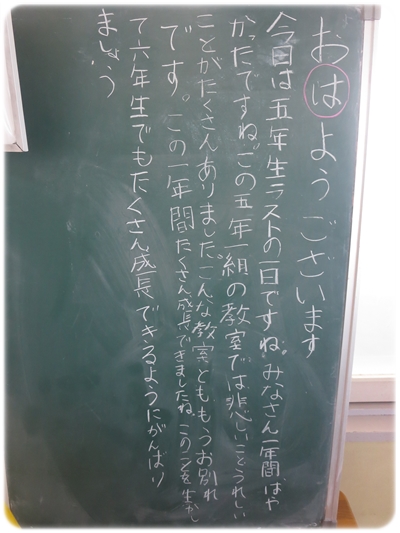 おはようございます
今日は五年生ラストの一日ですね。みなさん一年間はや
かったですね。この五年一組の教室では悲しいことうれしい
ことがたくさんありました。こんな教室とももうお別れ
です。この一年間たくさん成長できましたね。このことを生かし
て六年生でもたくさん成長できるようにがんばり
ましょう